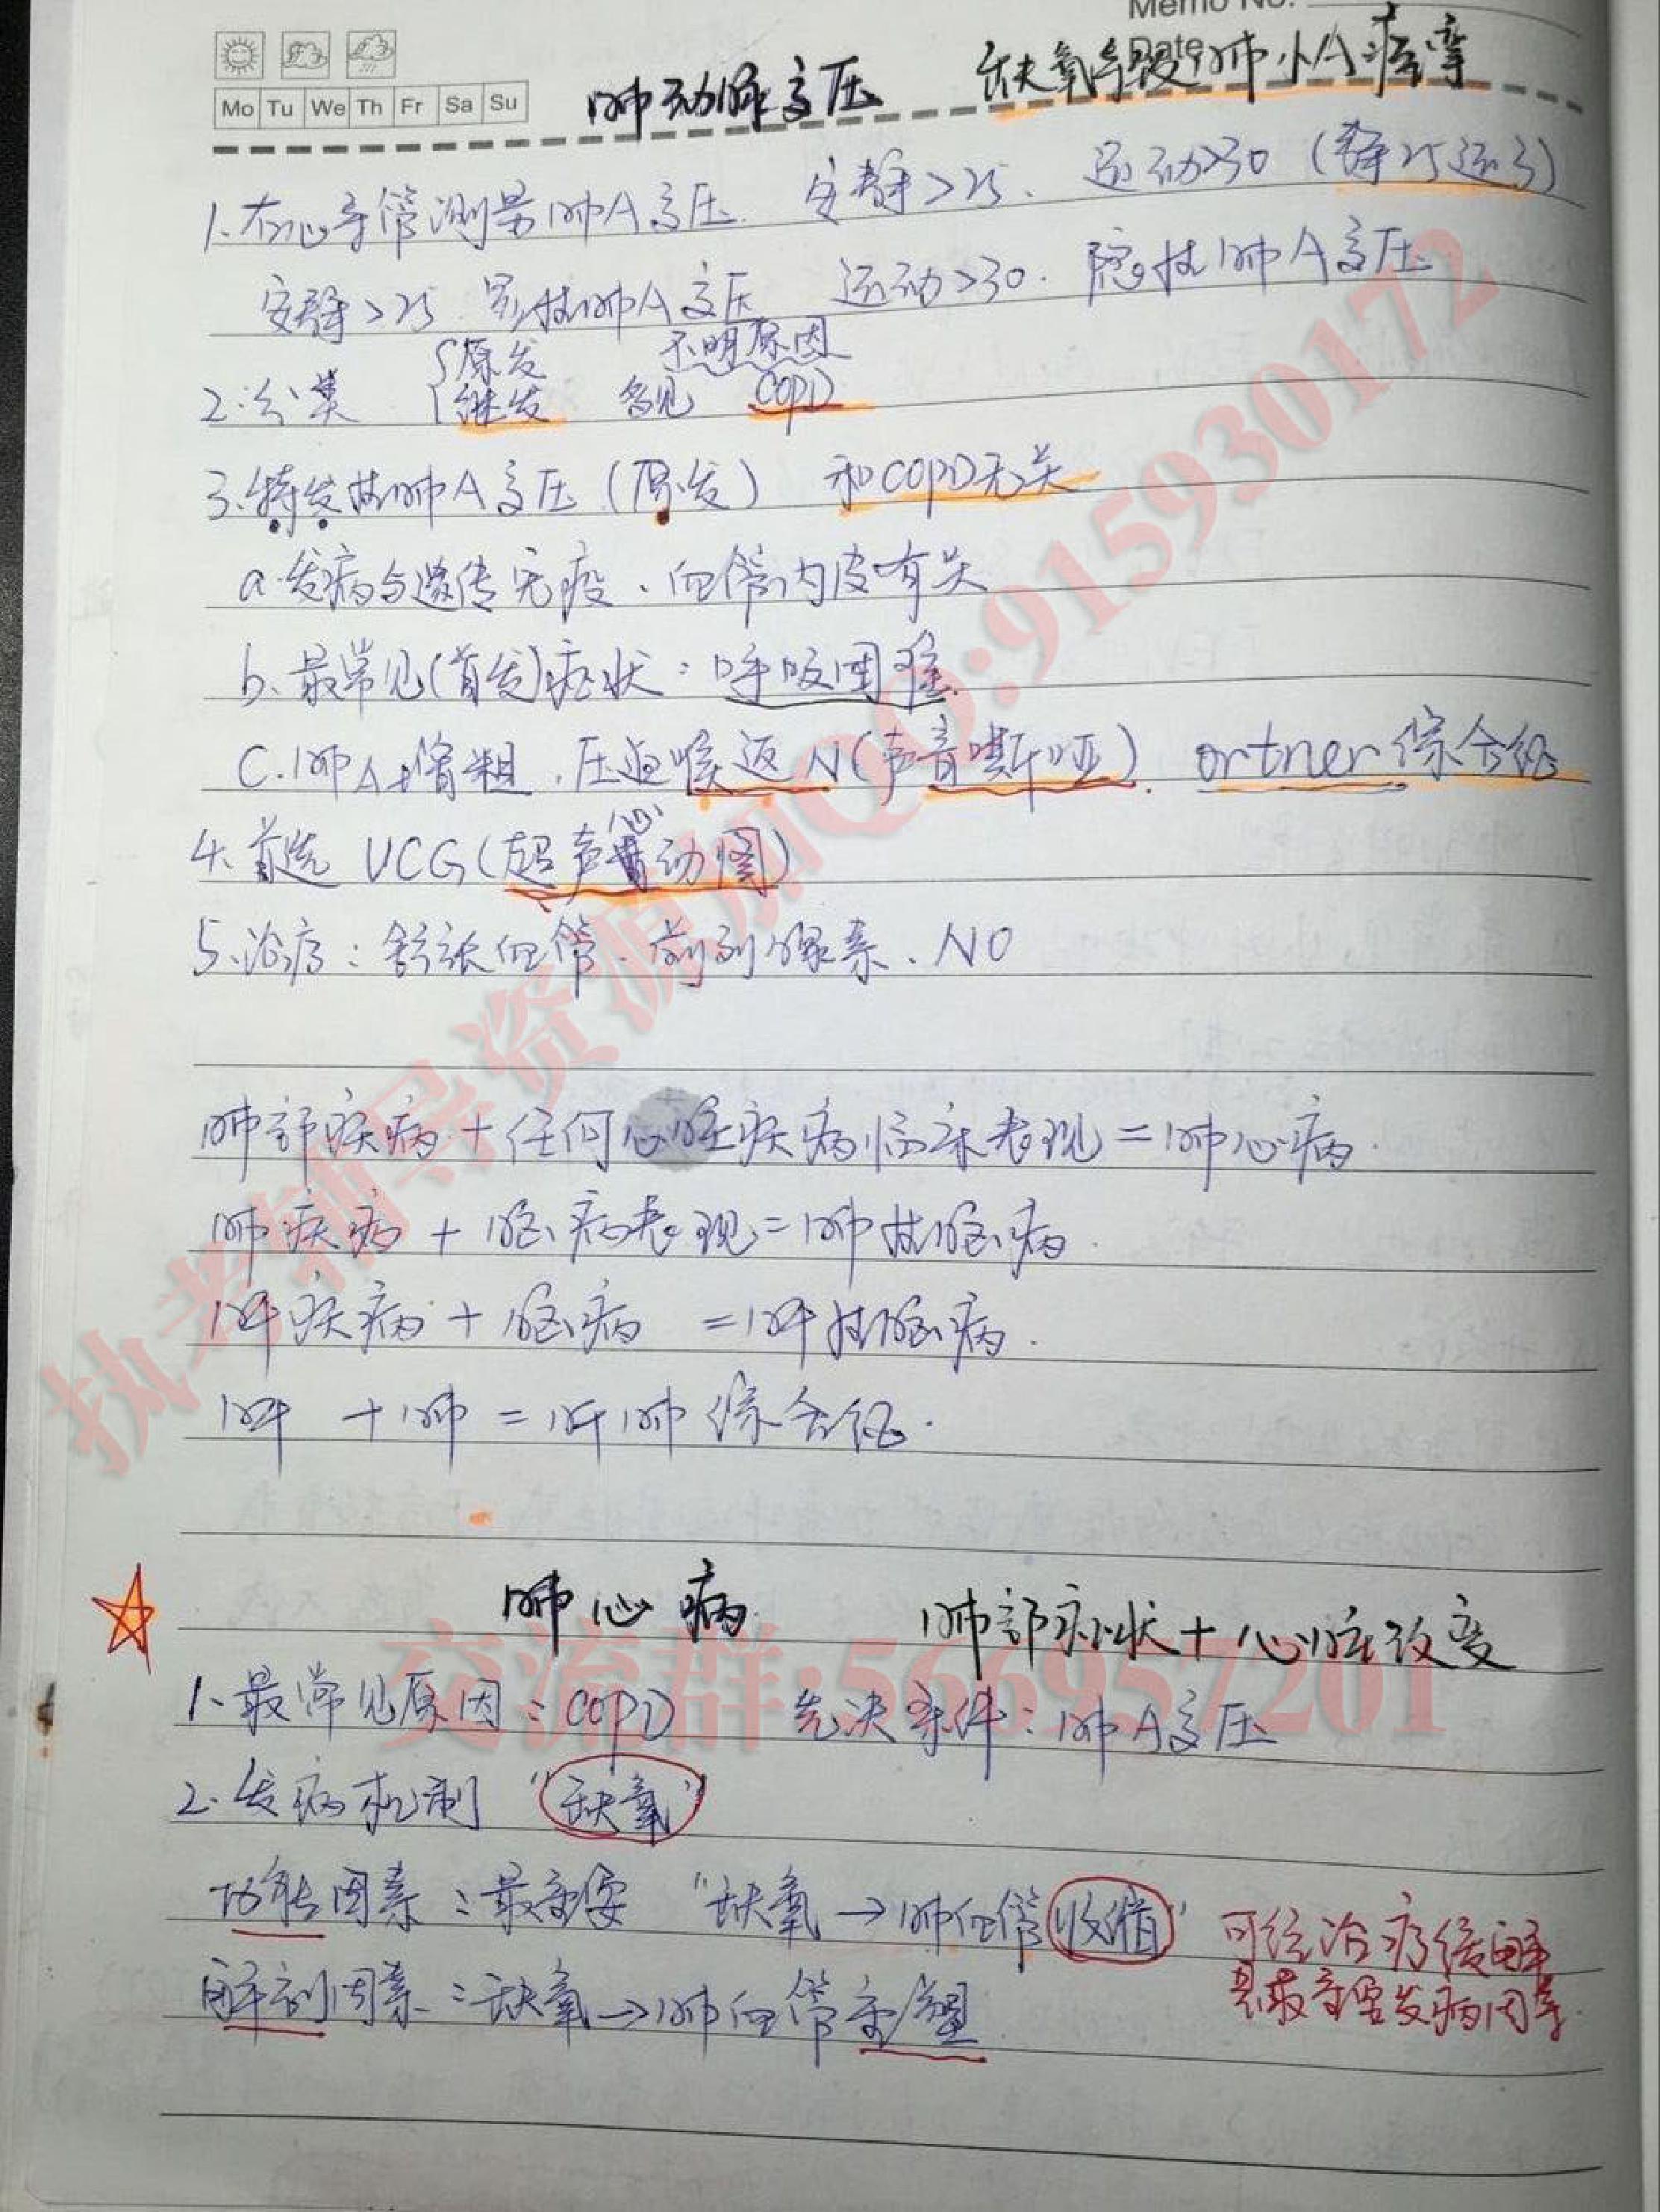 Memo No.
Date
Mo Tu We Th Fr Sa Su
肺动脉高压 缺氧导致肺小A痉挛
1.右心导管测量肺A高压. 安静>25. 运动>30 (静25运3)
安静>25 显性肺A高压 运动>30. 隐性肺A高压
2.分类 {原发 不明原因
继发 多见 COPD
3.特发性肺A高压(原发) 和COPD无关
a.发病与遗传免疫、血管内皮有关
b.最常见(首发)症状:呼吸困难.
C.肺A增粗.压迫喉返N(声音嘶哑). ortner综合征
4.首选 UCG(超声心动图)
5.治疗:舒张血管.前列腺素、NO
肺部疾病+任何心脏疾病临床表现=肺心病.
肺疾病+脑病表现=肺性脑病.
肝疾病+脑病 =肝性脑病.
肝 +肺=肝肺综合征.
肺心病. 肺部症状+心脏改变
1.最常见原因:COPD 先决条件:肺A高压
2.发病机制 "缺氧"
功能因素:最重要 "缺氧→肺血管收缩" 可经治疗缓解
是最主要发病因素.
解剖因素:缺氧→肺血管重塑
执考辅导资源加QQ:915930172
交流群:566957201